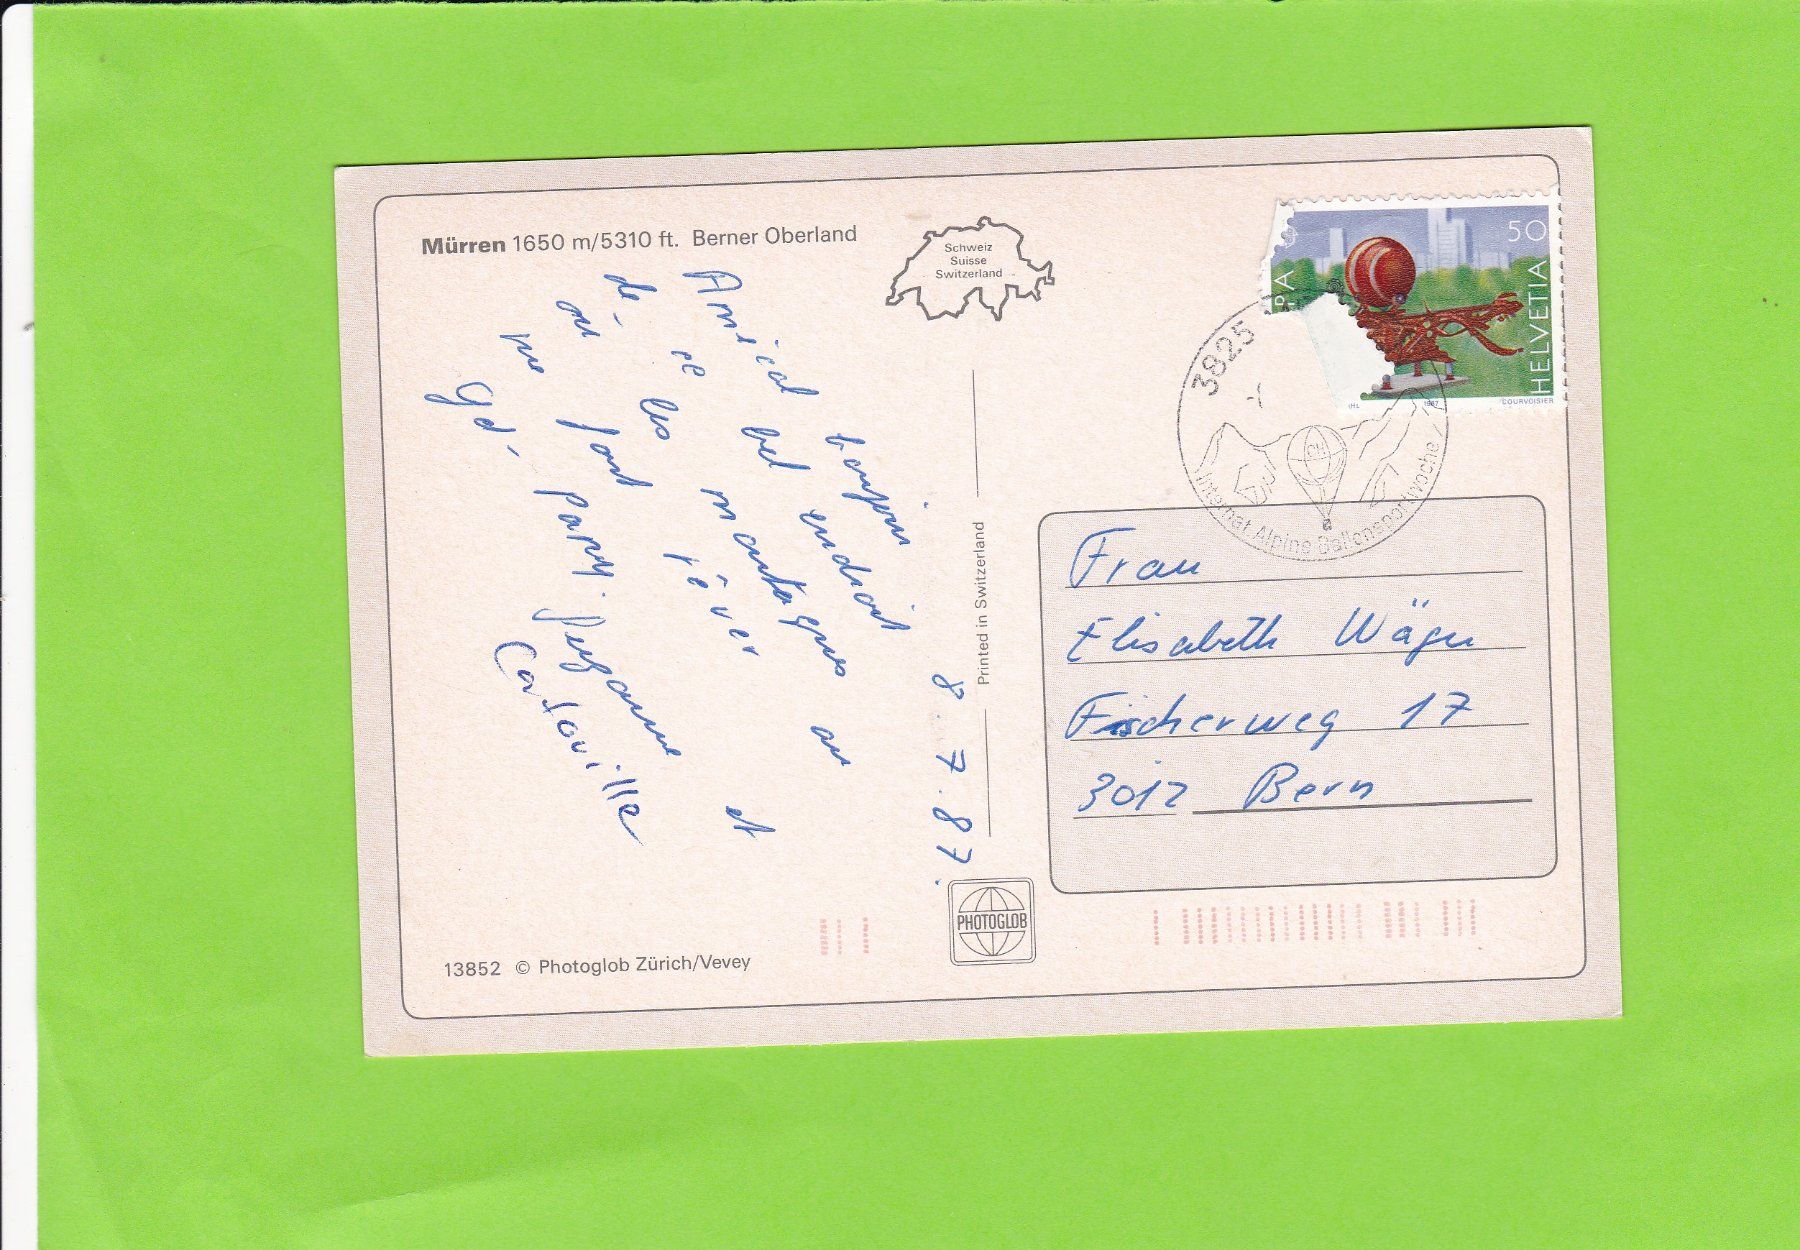 Mürren 1650 m/5310 ft. Berner Oberland
Schweiz
Suisse
Switzerland
50
HELVETIA
RA
1987
COURVOISIER
3825
Internat Alpine Ballonsportwoche
8.7.87.
Amical bonjour
de ce bel endroit
où les montagnes au
me font rêver et
Gd. Papy. Suzanne
Cardouville
Printed in Switzerland
Frau
Elisabeth Wäger
Fischerweg 17
3012 Bern
PHOTOGLOB
13852 © Photoglob Zürich/Vevey